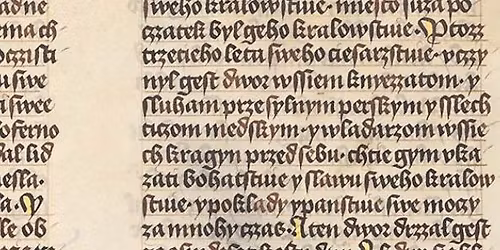 adne
emach
oczzisti
u swe
i swee
oferno
dal lid
esla·
a· V
le ob
sweho kralowstwie· miesto suza po
czzatek byl geho kralowstwie· Ptozz
trzetieho leta sweho ciesarzstwie· vczy
nyl gest dwor wssiem knyezatom· y
sluham przesylnym perskym y sslech
ticzom medskym· y wladarzom wssie
ch kragyn przed sebu· chtie gym vka
zati bohatstwie y slawu sweho kralow
stwie· y poklady y panstwie swe moczy
za mnohy czzas· A ten dwor drzal gest